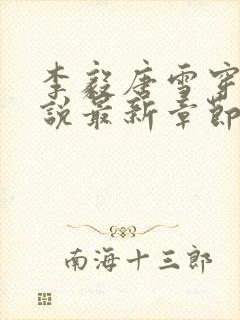 李毅唐雪穿
說最新章節
南海十三郎